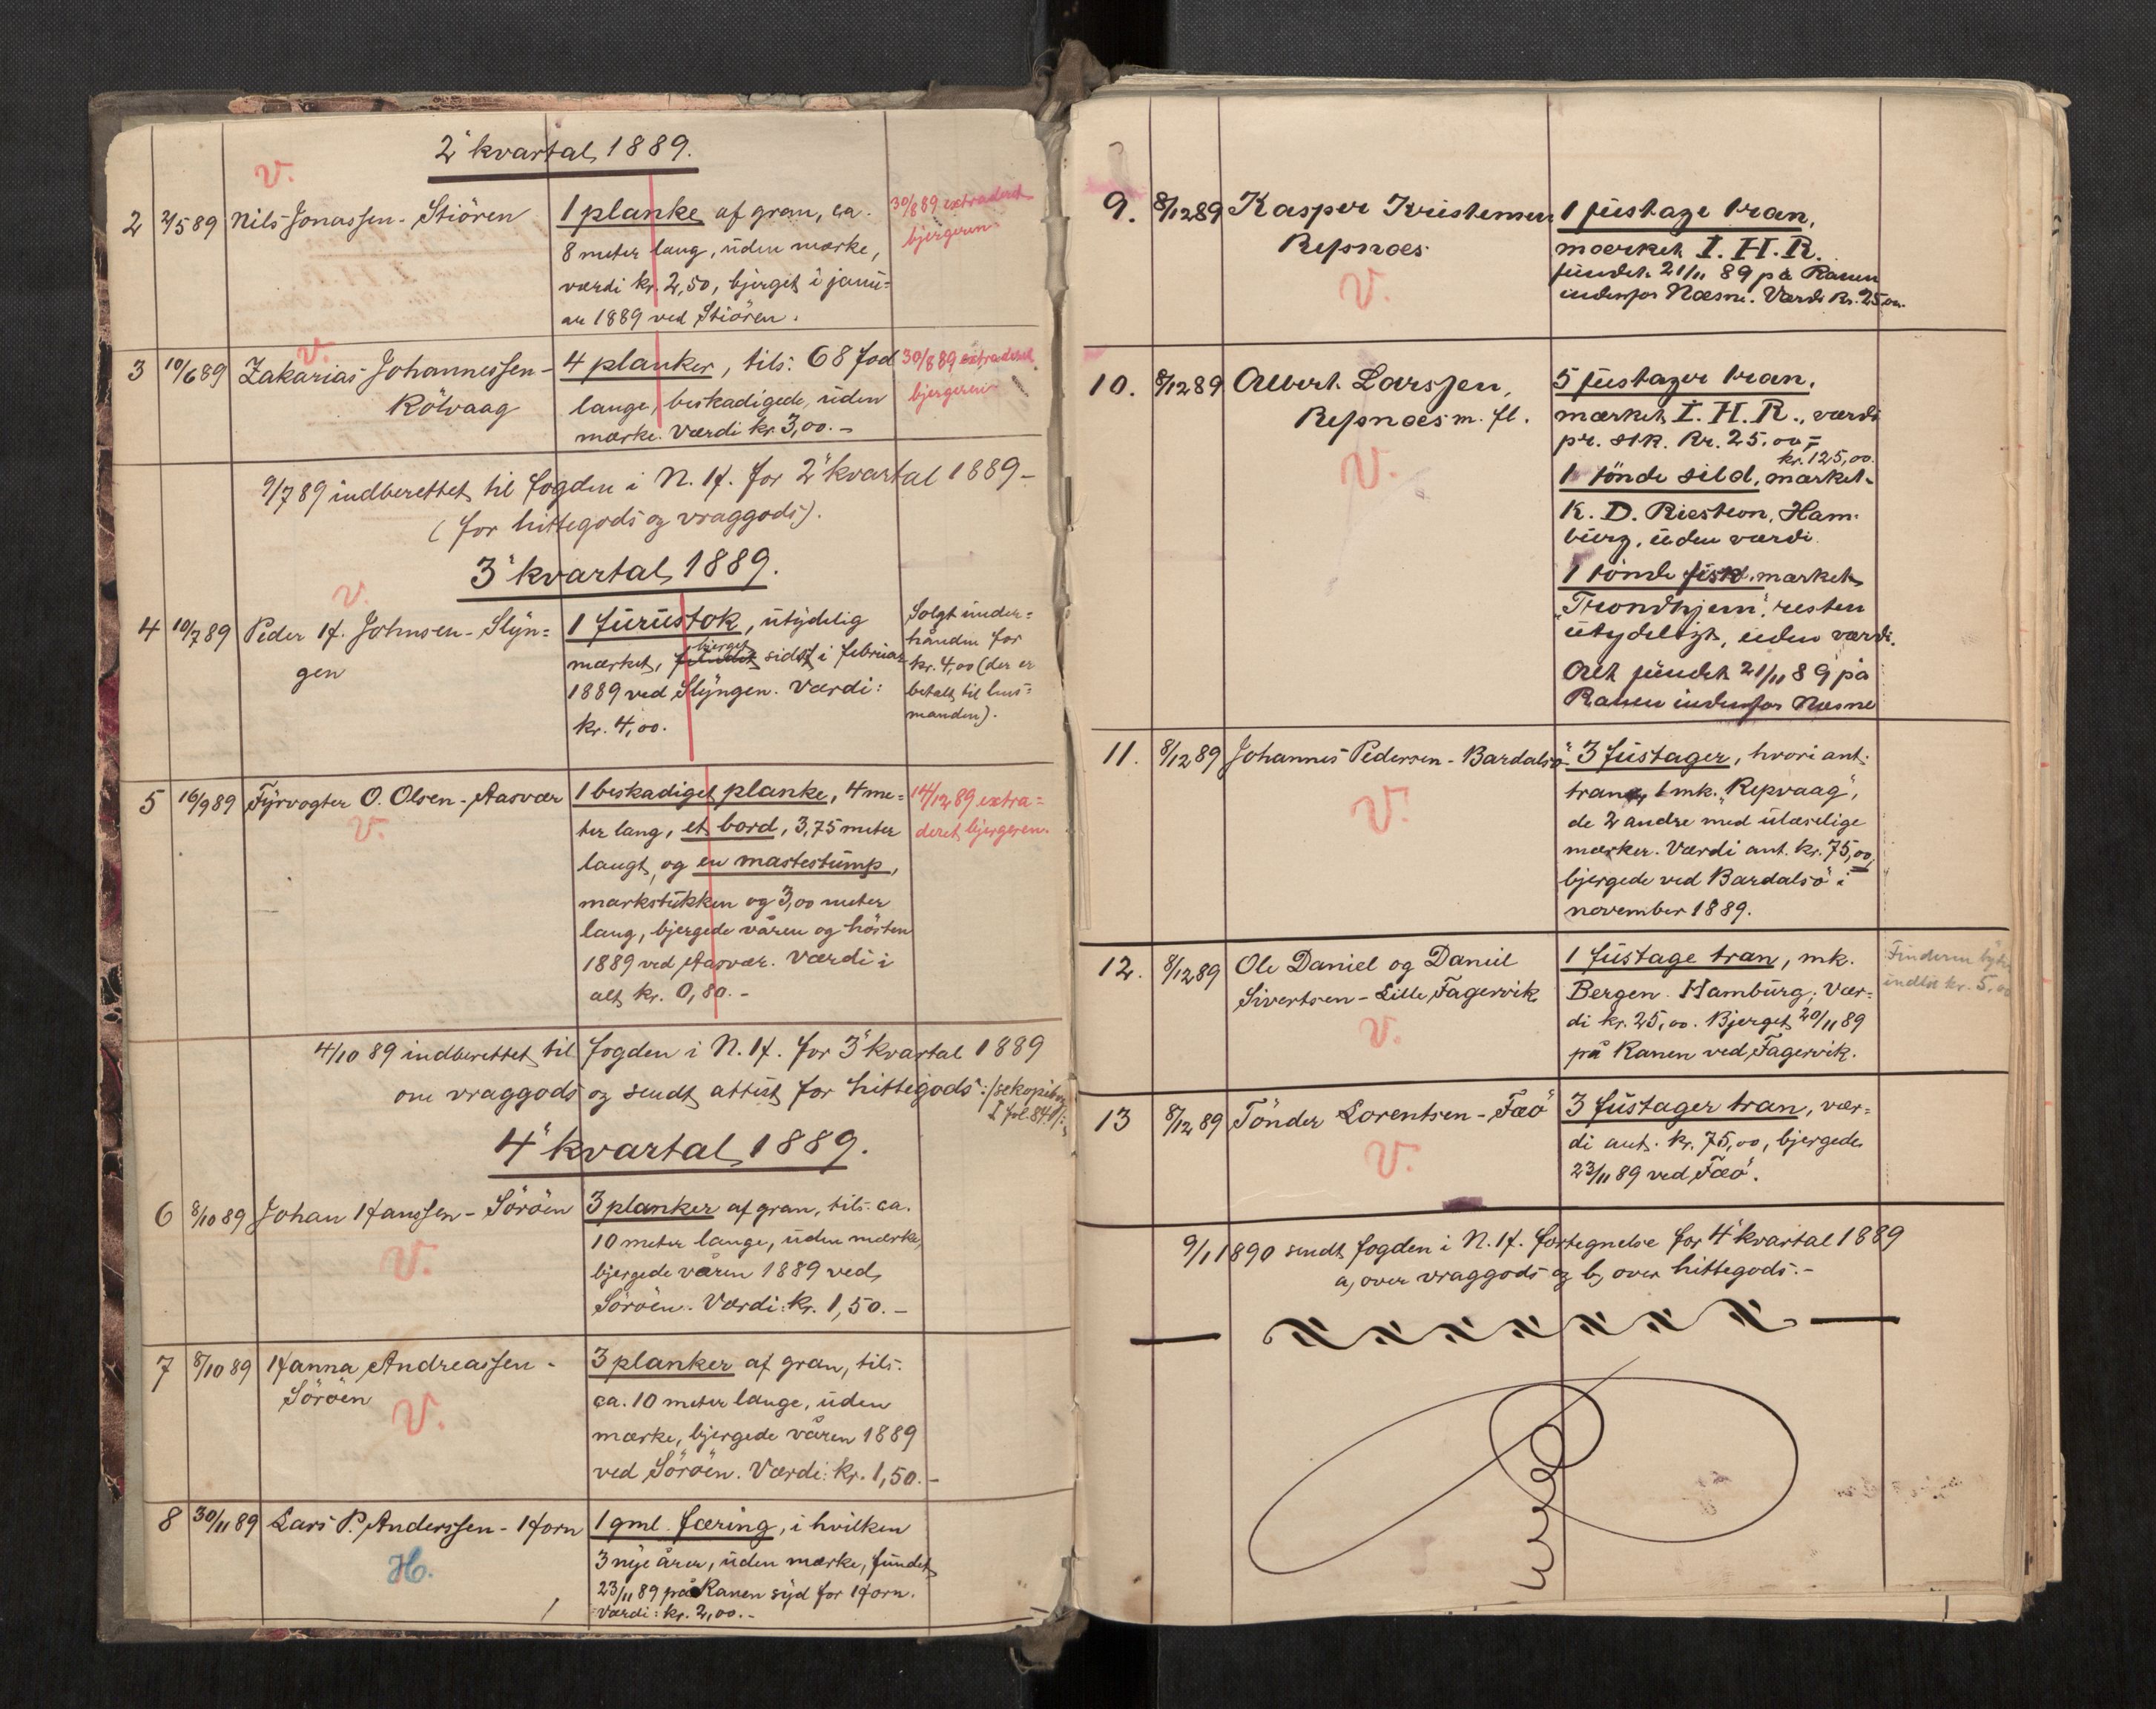 2' kvartal 1889.
V.
2 2/5 89 Nils Jonassen - Stiören
1 planke af gran, ca.
8 meter lang, uden mærke,
værdi kr. 2,50, bjerget i janu=
ar 1889 ved Stiören.
30/8 89 extraderet
bjergeren.
V.
3 10/6 89 Zakarias Johannessen -
Rölvaag
4 planker, tils. 68 fod
lange, beskadigede, uden
mærke. Værdi kr. 3,00. -
30/8 89 extraderet
bjergeren
9/7 89 indberettet til fogden i N. H. for 2' kvartal 1889 -
(for hittegods og vraggods).
3' kvartal 1889.
V.
4 10/7 89 Peder H. Johnsen - Slyn=
gen
1 furustok, utydelig
bjerget
mærket, fundet sidst i februar
1889 ved Slyngen. Værdi:
kr. 4,00.
Solgt under=
hånden for
kr. 4,00 (der er
betalt til lens=
manden).
5 16/9 89 Fyrvogter O. Olsen - Aasvær
V.
1 beskadiget planke, 4 me=
ter lang, et bord, 3,75 meter
langt, og en mastestump,
markstukken og 3,00 meter
lang, bjergede våren og hösten
1889 ved Aasvær. Værdi i
alt kr. 0,80. -
14/12 89 extra=
deret bjergeren.
4/10 89 indberettet til fogden i N. H. for 3' kvartal 1889
om vraggods og sendt attest for hittegods :/se kopibog
I fol. 84/:
4' kvartal 1889.
6 8/10 89 Johan Hanssen - Söröen
V.
3 planker af gran, tils. ca.
10 meter lange, uden mærke,
bjergede våren 1889 ved
Söröen. Værdi: kr. 1,50. -
7 8/10 89 Hanna Andreassen -
Söröen
V.
3 planker af gran, tils.
ca. 10 meter lange, uden
mærke, bjergede våren 1889
ved Söröen. Værdi: kr. 1,50. -
8 30/11 89 Lars P. Anderssen - Horn
H.
1 gml. færing, i hvilken
3 nye årer, uden mærke, fundet
23/11 89 på Ranen syd for Horn.
Værdi: kr. 2,00. -
9. 8/12 89 Kasper Kristensen
Repsnæs
V.
1 fustage tran,
mærket I. H. R.
fundet 21/11 89 på Ranen
indenfor Næsne. Værdi kr. 25,00.
10. 8/12 89 Albert Larssen,
Repsnæs m. fl.
V.
5 fustager tran,
mærket I. H. R., værdi
pr. stk. kr. 25,00 =
kr. 125,00.
1 tönde sild, mærket
K. D. Ham=
burg, uden værdi.
1 tönde fisk, mærket
"Trondhjem", resten
utydeligt, uden værdi.
Alt fundet 21/11 89 på
Ranen indenfor Næsne
11. 8/12 89 Johannes Pedersen - Bardalsö
V.
3 fustager, hvori ant.
tran, 1 mk. "Repvaag",
de 2 andre med ulæselige
mærker. Værdi ant. kr. 75,00,
bjergede ved Bardalsö i
november 1889.
12. 8/12 89 Ole Daniel og Daniel
Sivertsen - Lille Fagervik
V.
1 fustage tran, mk.
Bergen. Hamburg; Vær=
di kr. 25,00. Bjerget 20/11 89
på Ranen ved Fagervik.
Finderen
kr. 5,00
13 8/12 89 Tönder Lorentsen - Fæö
V.
3 fustager tran, vær=
di ant. kr. 75,00, bjergede
23/11 89 ved Fæö.
9/1 1890 sendt fogden i N. H. fortegnelse for 4' kvartal 1889
a, over vraggods og b, over hittegods. -